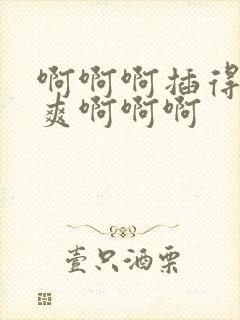 啊啊啊插得
爽啊啊啊
壹只酒票